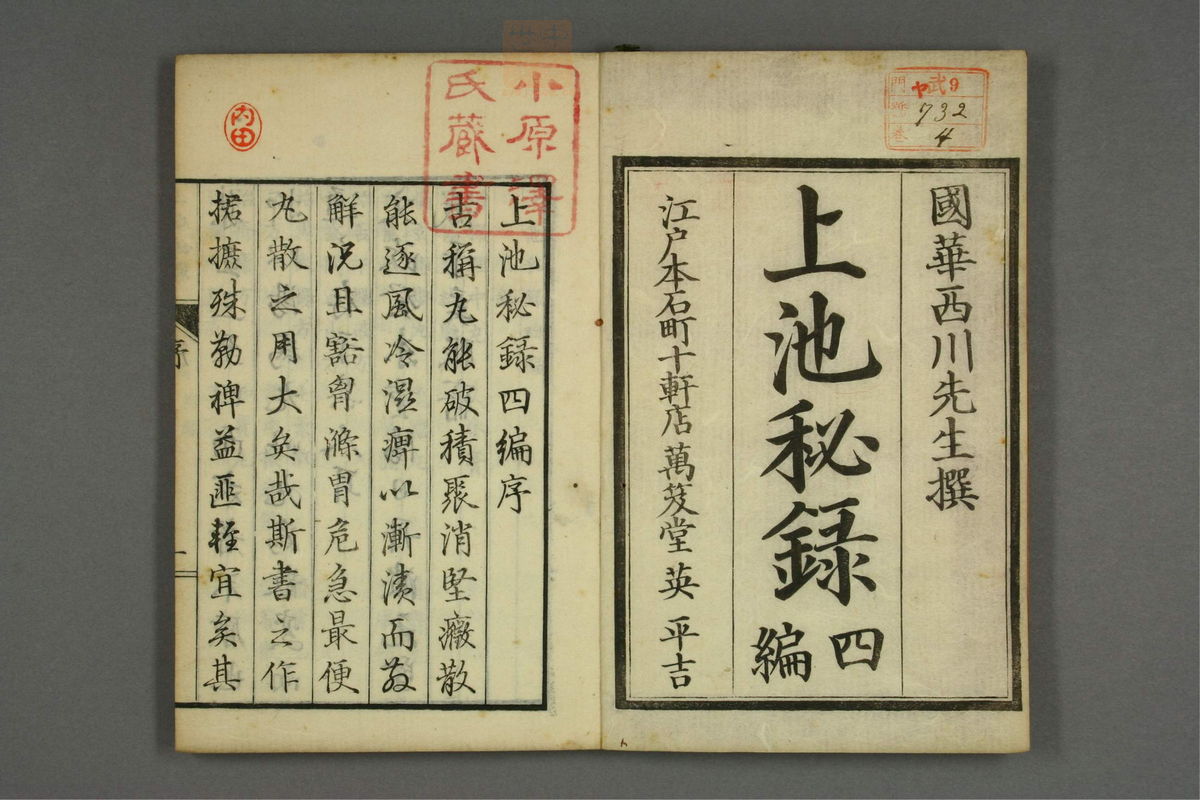 國華西川先生撰
上池秘録
四編
江戸本石町十軒店萬笈堂 英 平吉
門 武9
ヤ
号 732
巻 4
小原澤
氏蔵書
内田
上池秘録四編序
古稱丸能破積聚消堅癥散
能逐風冷濕痺以漸漬而
解況且豁胷滌胃危急最便
丸散之用大矣哉斯書之作
捃摭殊勤裨益匪輕宜矣其
序